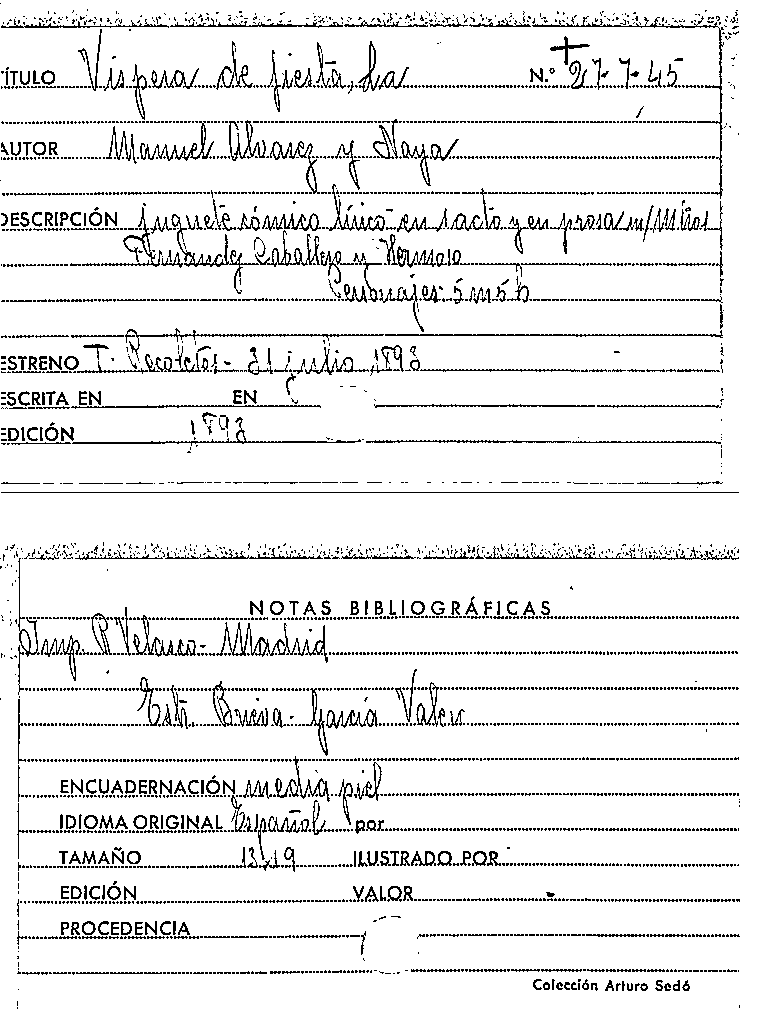 TÍTULO Vispera de fiesta, La N.º 27-7-45
AUTOR Manuel Alvarez y Naya
DESCRIPCIÓN juguete cómico lírico en 1 acto y en prosa m/Mtros
Fernandez Caballero y Hermoso
Personajes: 5 m 5 h
ESTRENO T. Recoletos - 31 julio 1893
ESCRITA EN EN
EDICIÓN 1893
NOTAS BIBLIOGRÁFICAS
Imp. R Velasco - Madrid
Estr. Brieva - García Valero
ENCUADERNACIÓN media piel
IDIOMA ORIGINAL Español por
TAMAÑO 13x19 ILUSTRADO POR
EDICIÓN VALOR
PROCEDENCIA
Colección Arturo Sedó